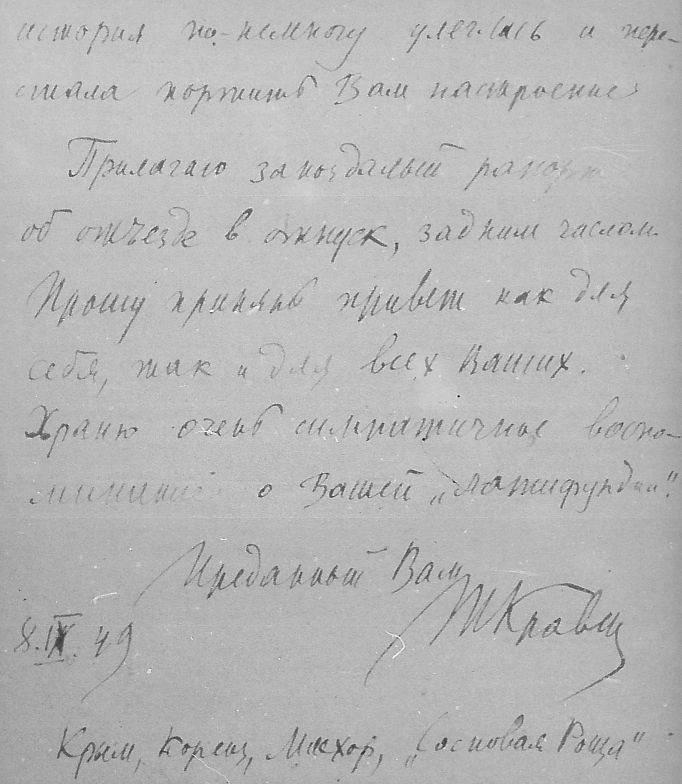 история по-немногу улеглась и пере-
стала портить Вам настроение
Прилагаю запоздалый рапорт
об отъезде в отпуск, задним числом.
Прошу принять привет как для
себя, так и для всех Ваших.
Храню очень симпатичные воспо-
минания о Вашей „латифундии“.
Преданный Вам
ТКравец
8.IX.49
Крым, Кореиз, Мисхор, „Сосновая Роща“